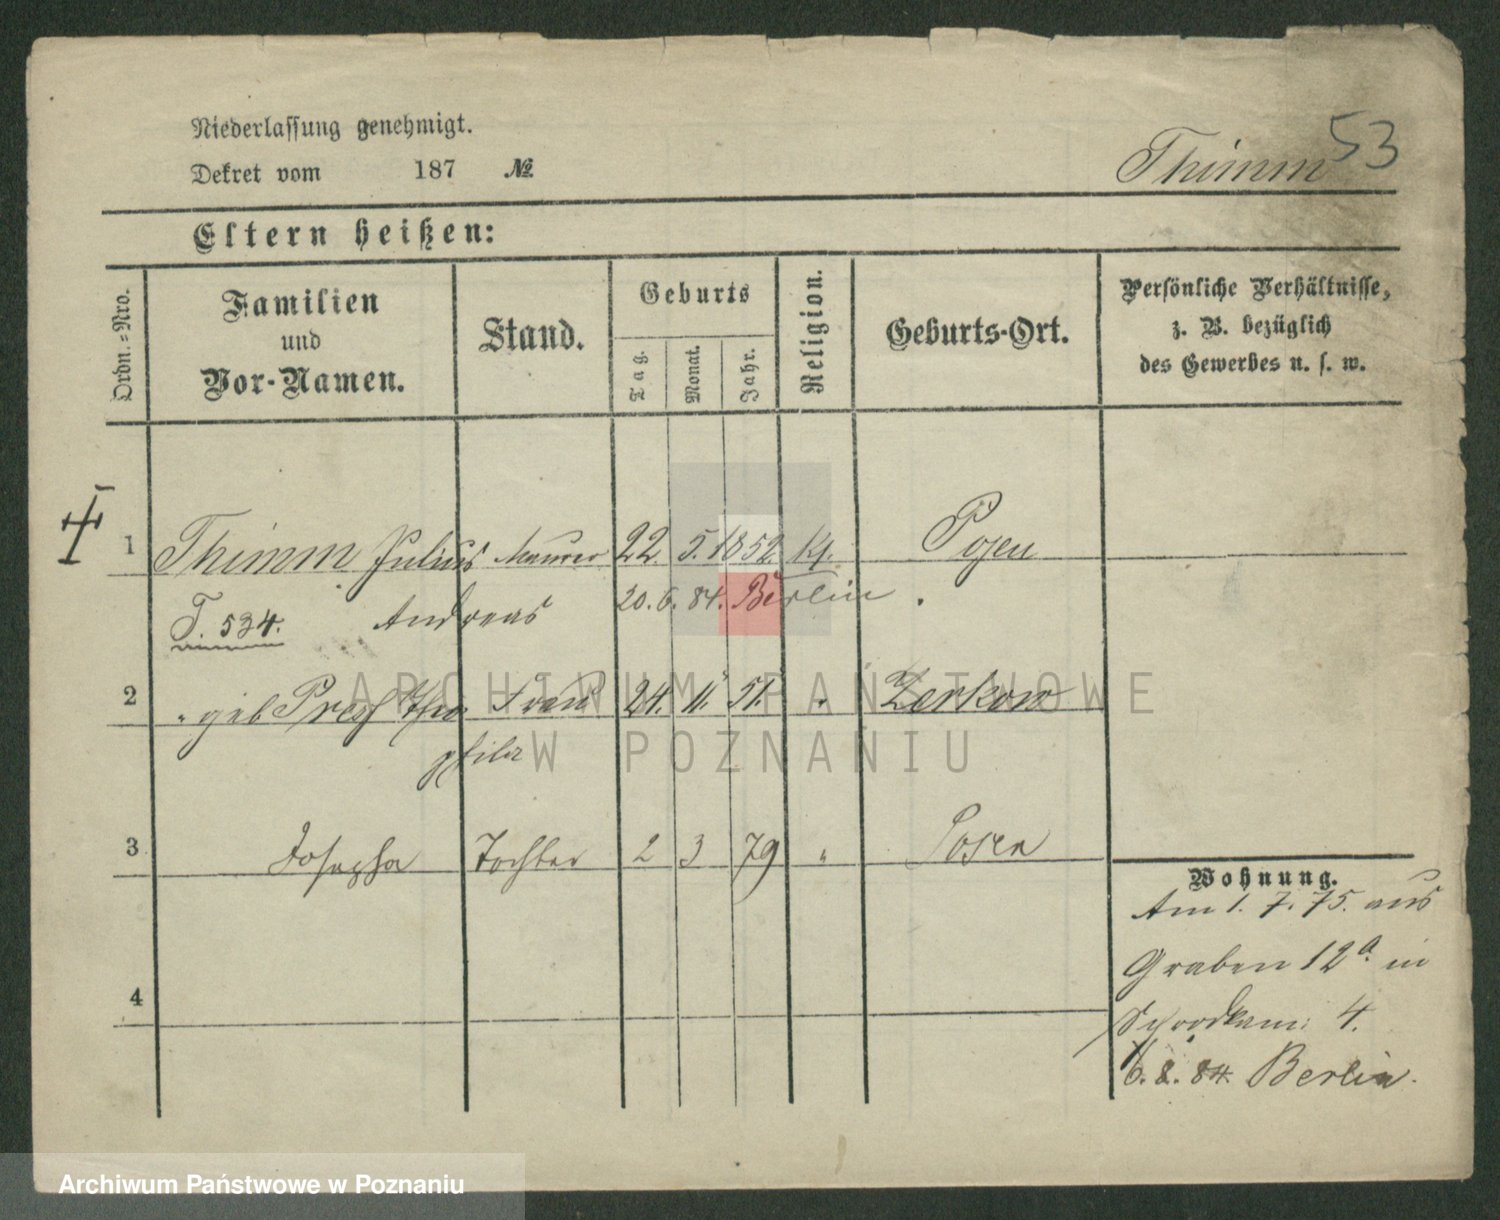 Niederlassung genehmigt.
Dekret vom 187 №
Thimm 53
Eltern heißen:
Ordn.-Nro.
Familien und Vor-Namen.
Stand.
Geburts
Tag.
Monat.
Jahr.
Religion.
Geburts-Ort.
Persönliche Verhältnisse,
z. B. bezüglich
des Gewerbes u. s. w.
1 Thimm Julius Maurer 22. 5. 1852. kf. Posen
T. 534. Andreas 20. 6. 84. Berlin.
2 " geb Theo Frau 24. 11. 51. " Zerkow
phila
3 Josepha Tochter 2 3 79 " Posen
Wohnung.
Am 1. 7. 75. aus
Graben 12a. in
4
4.
6. 8. 84. Berlin.
ARCHIWUM PAŃSTWOWE
W POZNANIU
Archiwum Państwowe w Poznaniu